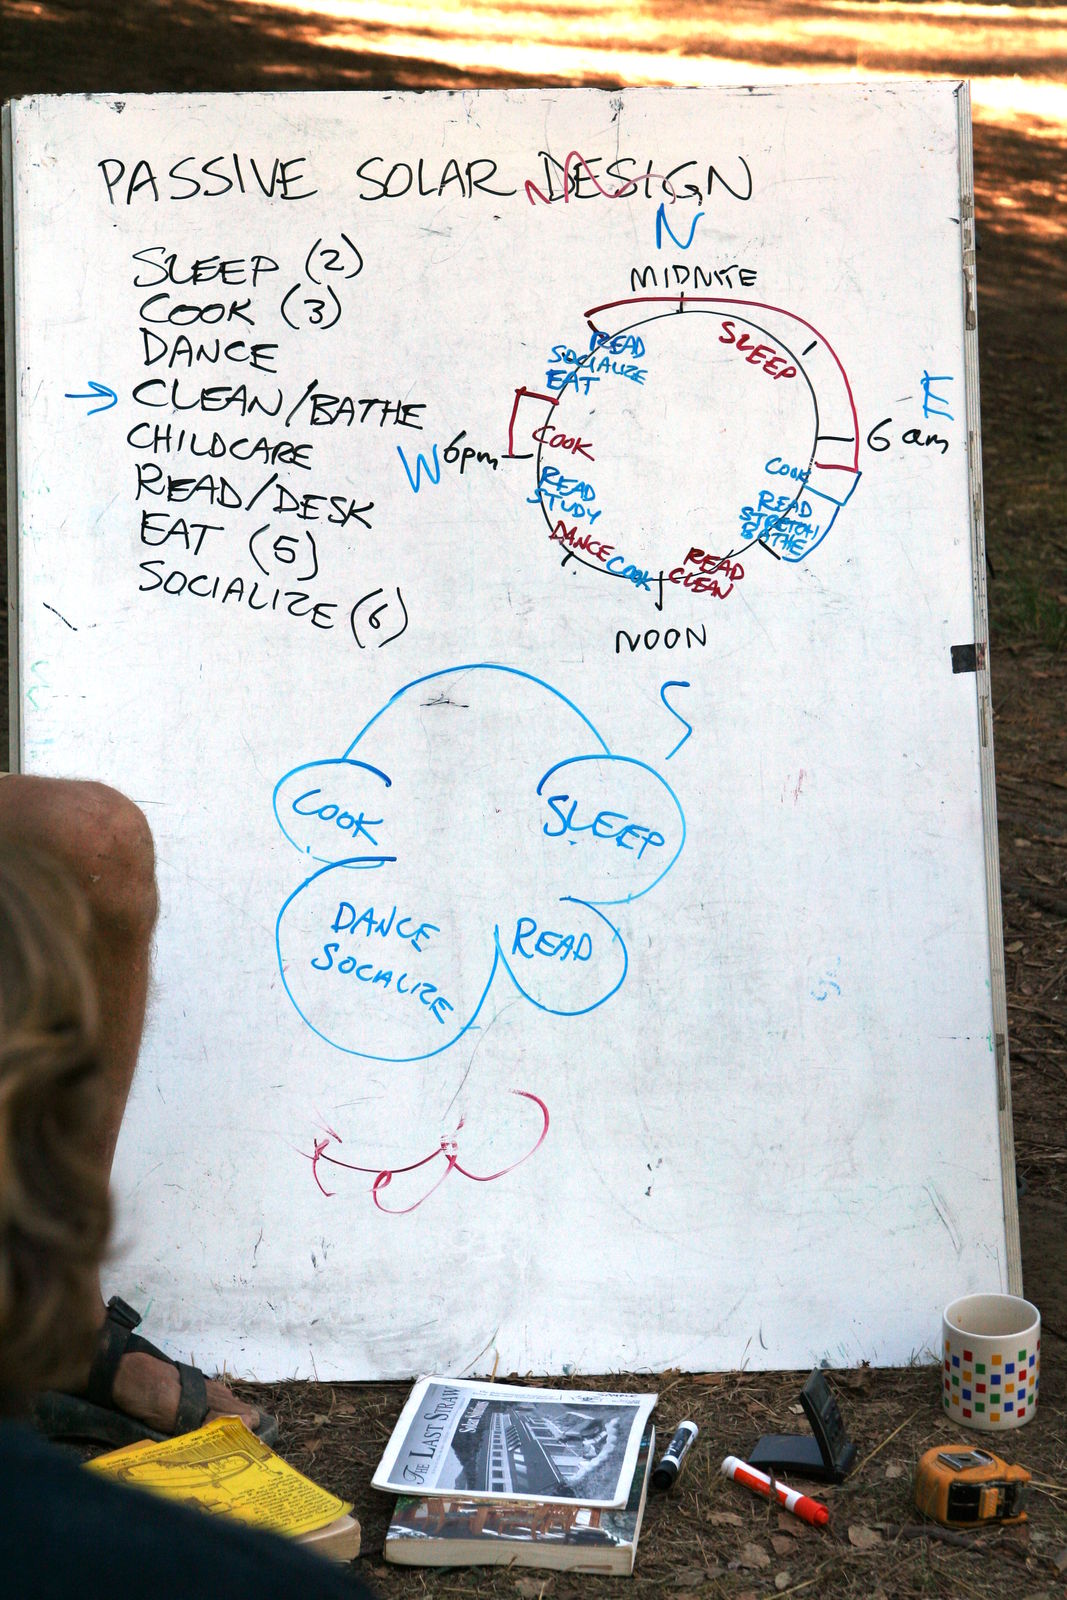 PASSIVE SOLAR DESIGN
SLEEP (2)
COOK (3)
DANCE
→ CLEAN/BATHE
CHILDCARE
READ/DESK
EAT (5)
SOCIALIZE (6)
N
MIDNITE
SLEEP
READ
SOCIALIZE
EAT
E
6 am
COOK
W 6pm
COOK
READ
STUDY
READ
STRETCH
BATHE
DANCE
COOK
READ
CLEAN
NOON
S
COOK
SLEEP
DANCE
SOCIALIZE
READ
THE LAST STRAW